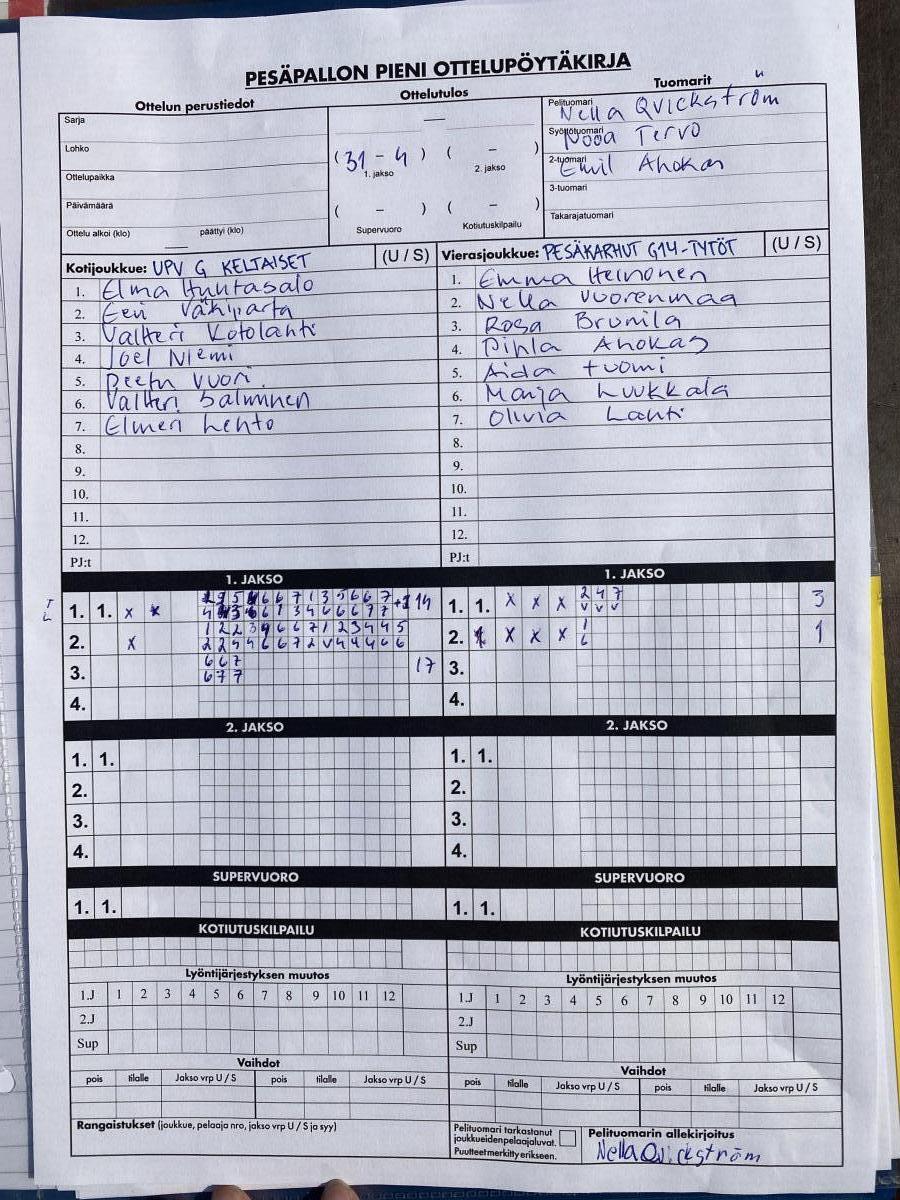 PESÄPALLON PIENI OTTELUPÖYTÄKIRJA
Ottelun perustiedot
Ottelutulos
Tuomarit
Sarja
Lohko
Ottelupaikka
Päivämäärä
Ottelu alkoi (klo) päättyi (klo)
—
(31 - 4) ( - )
1. jakso 2. jakso
( - ) ( - )
Supervuoro Kotiutuskilpailu
Pelituomari Nella Qvickström
Syöttötuomari Nooa Tervo
2-tuomari Emil Ahokas
3-tuomari
Takarajatuomari
Kotijoukkue: UPV G KELTAISET (U / S)
1. Elma Huhtasalo
2. Eeri Väkiparta
3. Valtteri Kotolahti
4. Joel Niemi
5. Peetu Vuori
6. Valtteri Salminen
7. Elmeri Lehto
8.
9.
10.
11.
12.
PJ:t
Vierasjoukkue: PESÄKARHUT G14-TYTÖT (U / S)
1. Emma Heinonen
2. Nella Vuorenmaa
3. Rosa Brunila
4. Pihla Ahokas
5. Aida Tuomi
6. Manja Luukkala
7. Olivia Lahti
8.
9.
10.
11.
12.
PJ:t
1. JAKSO
1. 1. x x 14
2. x
3. 6 6 7
6 7 7 17
4.
1. JAKSO
1. 1. x x x 2 4 7 3
v v v
2. x x x 1 1
6
3.
4.
2. JAKSO
1. 1.
2.
3.
4.
2. JAKSO
1. 1.
2.
3.
4.
SUPERVUORO
1. 1.
SUPERVUORO
1. 1.
KOTIUTUSKILPAILU
KOTIUTUSKILPAILU
Lyöntijärjestyksen muutos
1.J 1 2 3 4 5 6 7 8 9 10 11 12
2.J
Sup
Lyöntijärjestyksen muutos
1.J 1 2 3 4 5 6 7 8 9 10 11 12
2.J
Sup
Vaihdot
pois tilalle Jakso vrp U / S pois tilalle Jakso vrp U / S
Vaihdot
pois tilalle Jakso vrp U / S pois tilalle Jakso vrp U / S
Rangaistukset (joukkue, pelaaja nro, jakso vrp U / S ja syy)
Pelituomari tarkastanut
joukkueidenpelaajaluvat.
Puutteetmerkittyerikseen.
Pelituomarin allekirjoitus
Nella Qvickström